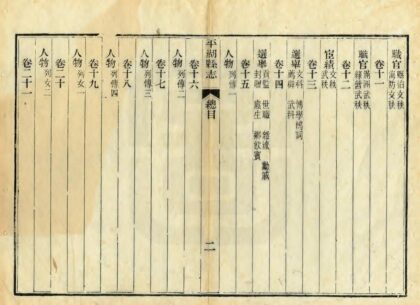 卷十一
職官 縣治文秩
海防文秩
卷十二
職官 滿洲武秩
綠營武秩
卷十三
宦績 文秩
武秩
選舉 文科 博學鴻詞
薦辟 武科
卷十四
選舉 貢監 世職 雜途 勳戚
封贈 廕生 鄉飲賓
卷十五
人物 列傳一
平湖縣志 總目 二
卷十六
人物 列傳二
卷十七
人物 列傳三
卷十八
人物 列傳四
卷十九
人物 列女一
卷二十
人物 列女二
卷二十一